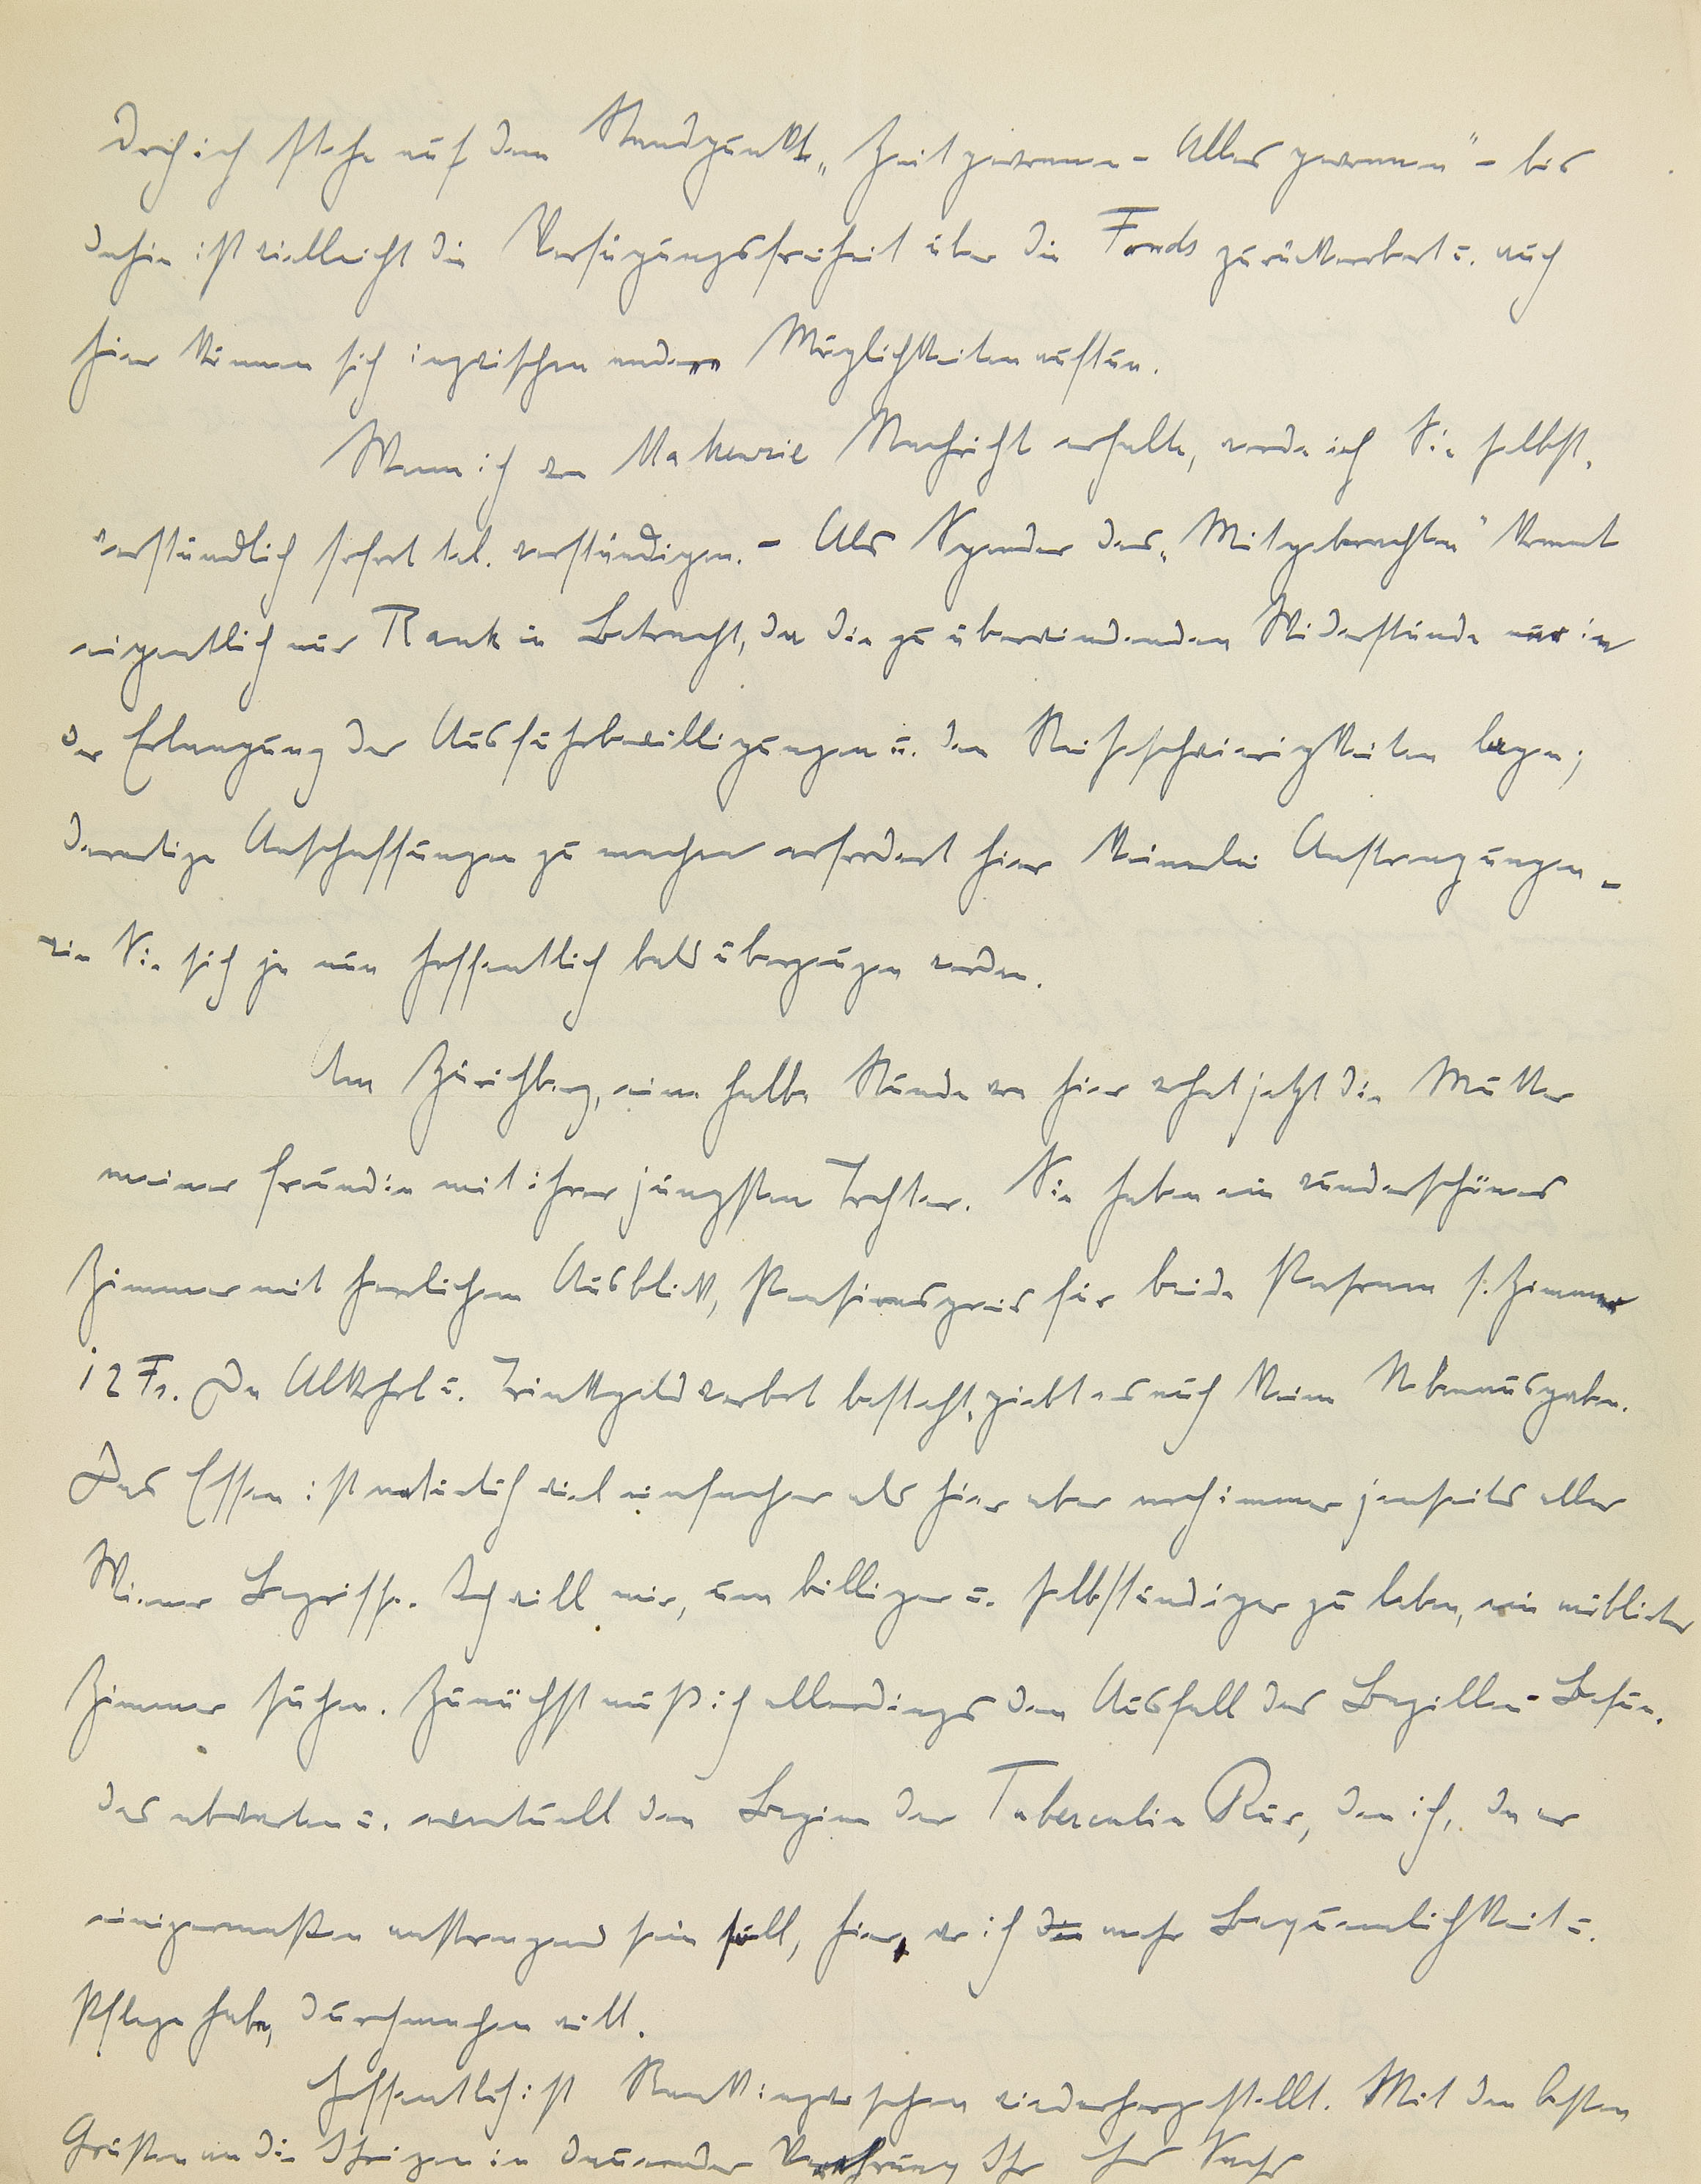 Doch ich stehe auf dem Standpunkt „Zeit gewonnen – Alles gewonnen" – bis
dahin ist vielleicht die Verfügungsfreiheit über die Fonds zurückerobert u. auch
hier können sich inzwischen andere Möglichkeiten auftun.
Wenn ich von Makenzie Nachricht erhalte, werde ich Sie selbst-
verständlich sofort tel. verständigen. – Als Spender des „Mitgebrachten" kommt
eigentlich nur Rank in Betracht, da die zu überwindenden Widerstände nur in
der Erlangung der Ausfuhrbewilligungen u. den Reiseschwierigkeiten lagen;
derartige Anschaffungen zu machen erfordert hier keinerlei Anstrengungen –
wie Sie sich ja nun hoffentlich bald überzeugen werden.
Am Zürichberg, eine halbe Stunde von hier wohnt jetzt die Mutter
meiner Freundin mit ihrer jüngsten Tochter. Sie haben ein wunderschönes
Zimmer mit herrlichem Ausblick, Pensionspreis für beide Personen s. Zimmer
12 Fr. Da Alkohol u. Trinkgeldverbot besteht, giebt es auch keine Nebenausgaben.
Das Essen ist natürlich viel einfacher als hier aber noch immer jenseits aller
Wiener Begriffe. Ich will mir, um billiger u. selbständiger zu leben, ein möbliertes
Zimmer suchen. Zunächst muß ich allerdings den Ausfall des Bazillen-Befun-
des abwarten u. eventuell den Beginn der Tuberculin Kur, den ich, da er
einigermaßen anstrengend sein soll, hier, wo ich mehr Bequemlichkeit u.
Pflege habe, durchmachen will.
Hoffentlich ist Rank inzwischen wiederhergestellt. Mit den besten
Grüßen an die Ihrigen in dauernder Verehrung Ihr Hanns Sachs